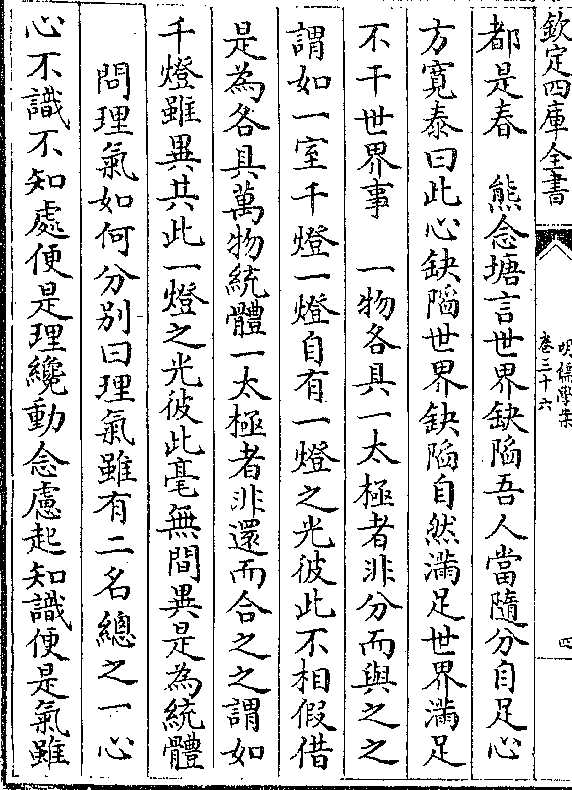 欽定四庫全書
明儒學案
卷三十六
四
都是春　熊念塘言世界缺陷吾人當隨分自足心
方寛泰曰此心缺陷世界缺陷自然滿足世界滿足
不干世界事　一物各具一太極者非分而與之之
謂如一室千燈一燈自有一燈之光彼此不相假借
是為各具萬物統體一太極者非還而合之之謂如
千燈雖異共此一燈之光彼此毫無間異是為統體
問理氣如何分别曰理氣雖有二名總之一心
心不識不知處便是理纔動念慮起知識便是氣雖